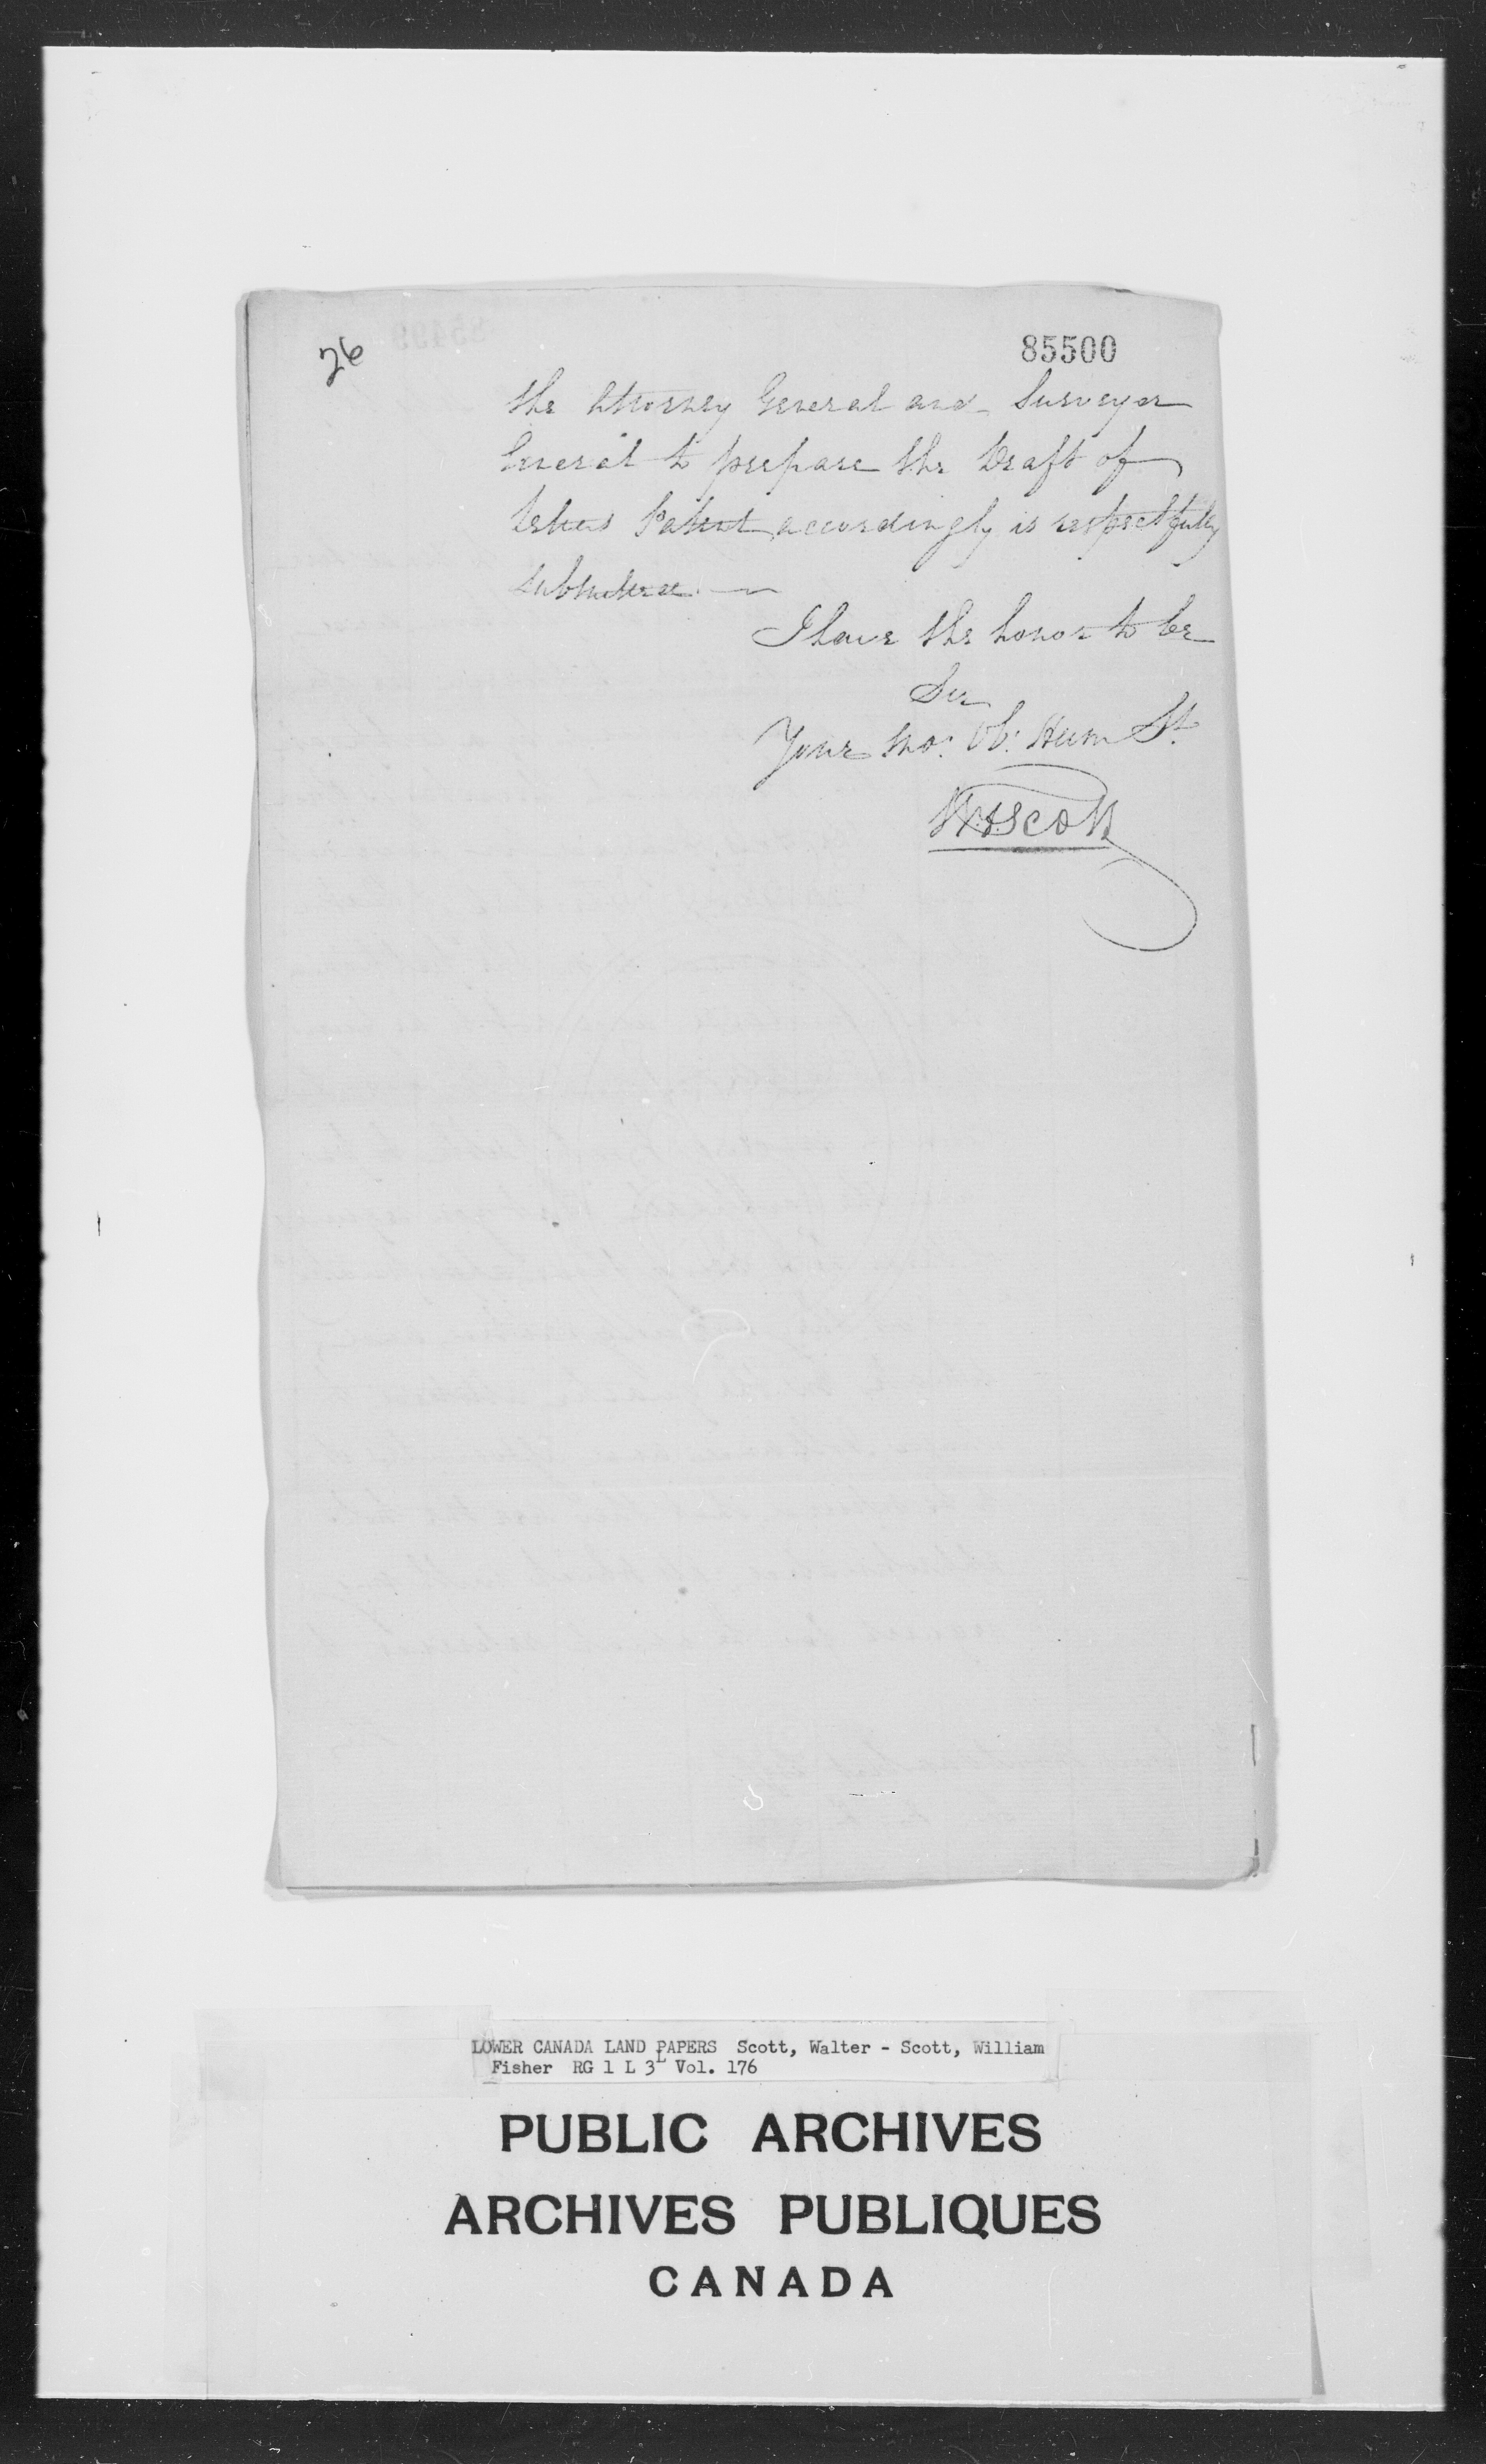 26
85500
the Attorney General and Surveyor
General to prepare the Draft of
Letters Patent accordingly is respectfully
submitted. —
I have the honor to be
Sir
Your Mo: Ob: Hum St.
W. Scott
LOWER CANADA LAND PAPERS Scott, Walter - Scott, William
Fisher RG 1 L 3L Vol. 176
PUBLIC ARCHIVES
ARCHIVES PUBLIQUES
CANADA